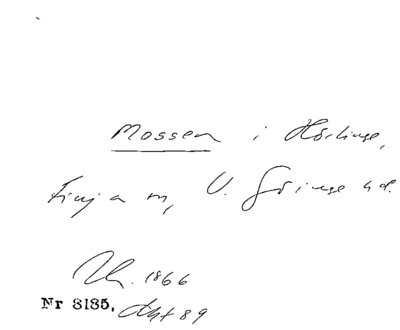 Mossen i Hörlinge,
Finja sn, V. Göinge hd.
1866
Nr 8185, Akt 89